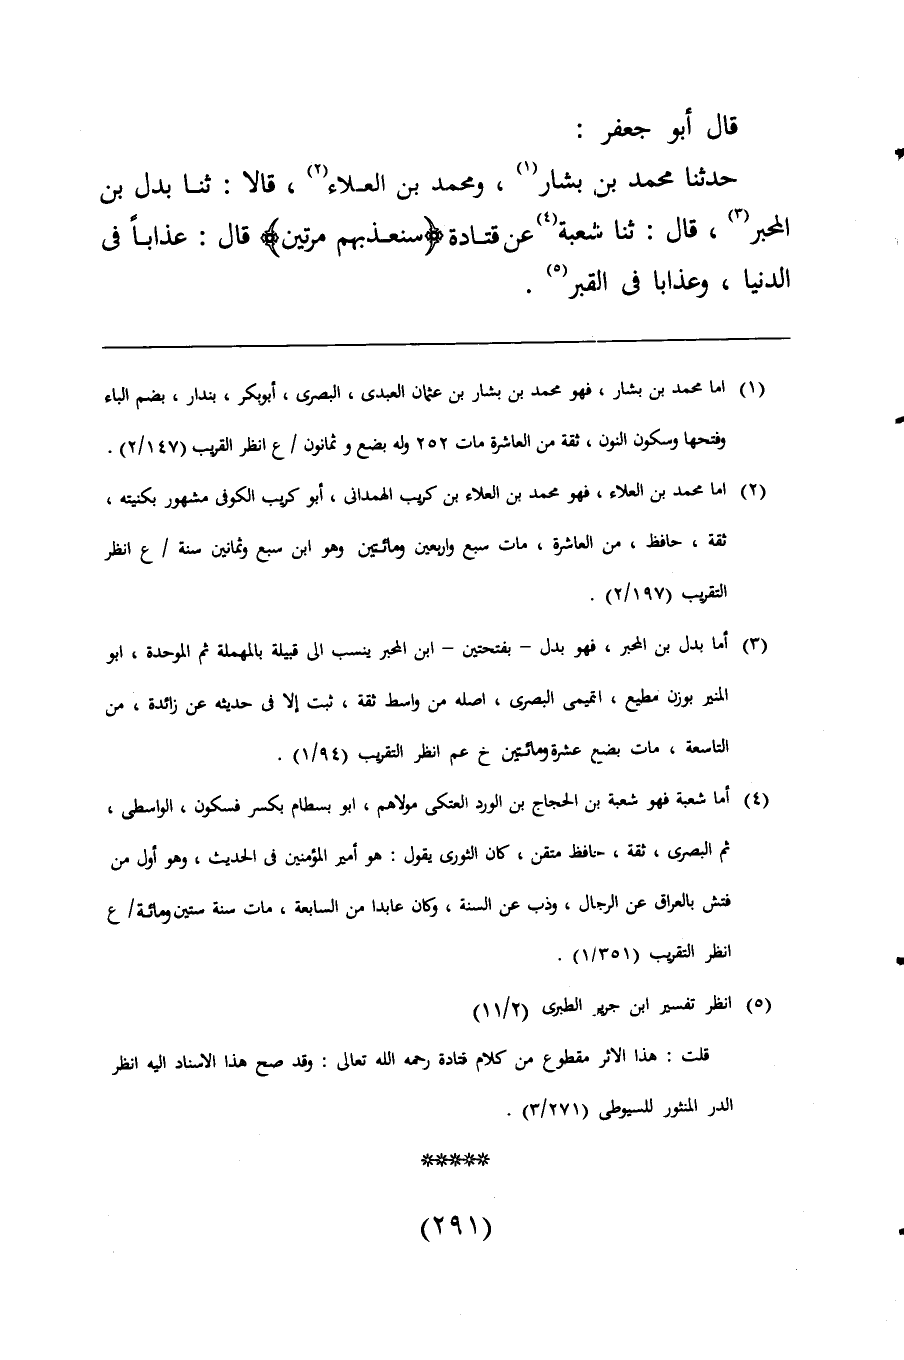 قال أبو جعفر :
حدثنا محمد بن بشار(١) ، ومحمد بن العـلاء(٢) ، قالا : ثنـا بدل بن
المحبر(٣) ، قال : ثنا شعبة(٤) عن قتـادة ﴿سنعـذبهم مرتين﴾ قال : عذابـاً فى
الدنيا ، وعذابا فى القبر(٥) .
(١) اما محمد بن بشار ، فهو محمد بن بشار بن عثمان العبدى ، البصرى ، أبوبكر ، بندار ، بضم الباء
وفتحها وسكون النون ، ثقة من العاشرة مات ٢٥٢ وله بضع و ثمانون / ع انظر القريب (٢/١٤٧) .
(٢) اما محمد بن العلاء ، فهو محمد بن العلاء بن كريب الهمدانى ، أبو كريب الكوفى مشهور بكنيته ،
ثقة ، حافظ ، من العاشرة ، مات سبع واربعين ومائـتين وهو ابن سبع وثمانين سنة / ع انظر
التقريب (٢/١٩٧) .
(٣) أما بدل بن المحبر ، فهو بدل – بفتحتين – ابن المحبر ينسب الى قبيلة بالمهملة ثم الموحدة ، ابو
المنير بوزن مطيع ، اتميمى البصرى ، اصله من واسط ثقة ، ثبت إلا فى حديثه عن زائدة ، من
التاسعة ، مات بضع عشرة ومائـتين خ عم انظر التقريب (١/٩٤) .
(٤) أما شعبة فهو شعبة بن الحجاج بن الورد العتكى مولاهم ، ابو بسطام بكسر فسكون ، الواسطى ،
ثم البصرى ، ثقة ، حافظ متقن ، كان الثورى يقول : هو أمير المؤمنين فى الحديث ، وهو أول من
فتش بالعراق عن الرجال ، وذب عن السنة ، وكان عابدا من السابعة ، مات سنة ستين ومائـة / ع
انظر التقريب (١/٣٥١) .
(٥) انظر تفسير ابن جرير الطبرى (١١/٢)
قلت : هذا الاثر مقطوع من كلام قتادة رحمه الله تعالى : وقد صح هذا الاسناد اليه انظر
الدر المنثور للسيوطى (٣/٢٧١) .
*****
(٢٩١)